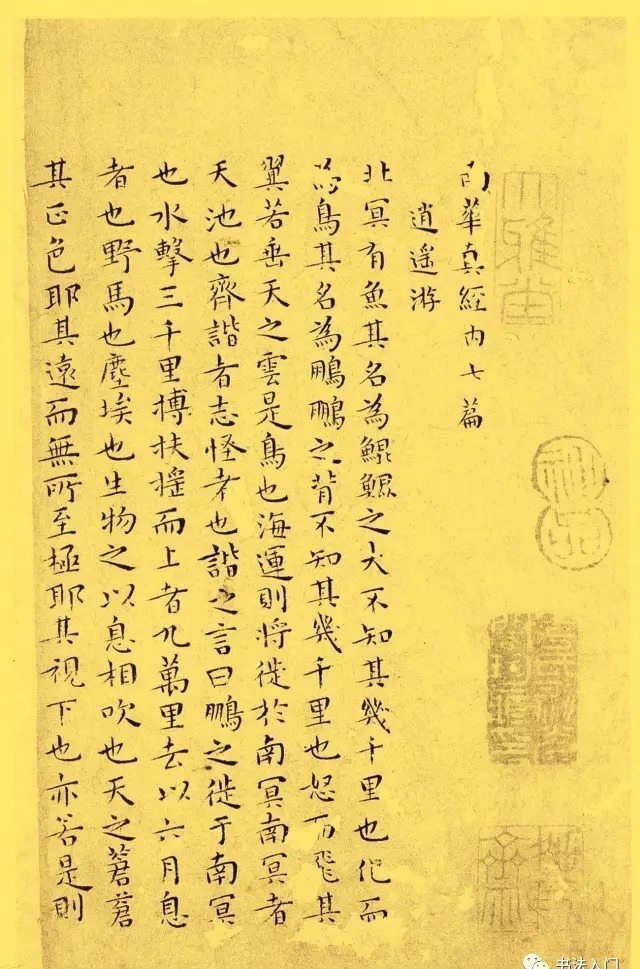 大雅堂
神品
南華真經内七篇
逍遥游
北冥有魚其名為鯤鯤之大不知其幾千里也化而
為鳥其名為鵬鵬之背不知其幾千里也怒而飛其
翼若垂天之雲是鳥也海運則將徙於南冥南冥者
天池也齊諧者志怪者也諧之言曰鵬之徙于南冥
也水擊三千里搏扶摇而上者九萬里去以六月息
者也野馬也塵埃也生物之以息相吹也天之蒼蒼
其正色耶其遠而無所至極耶其視下也亦若是則
书法入门